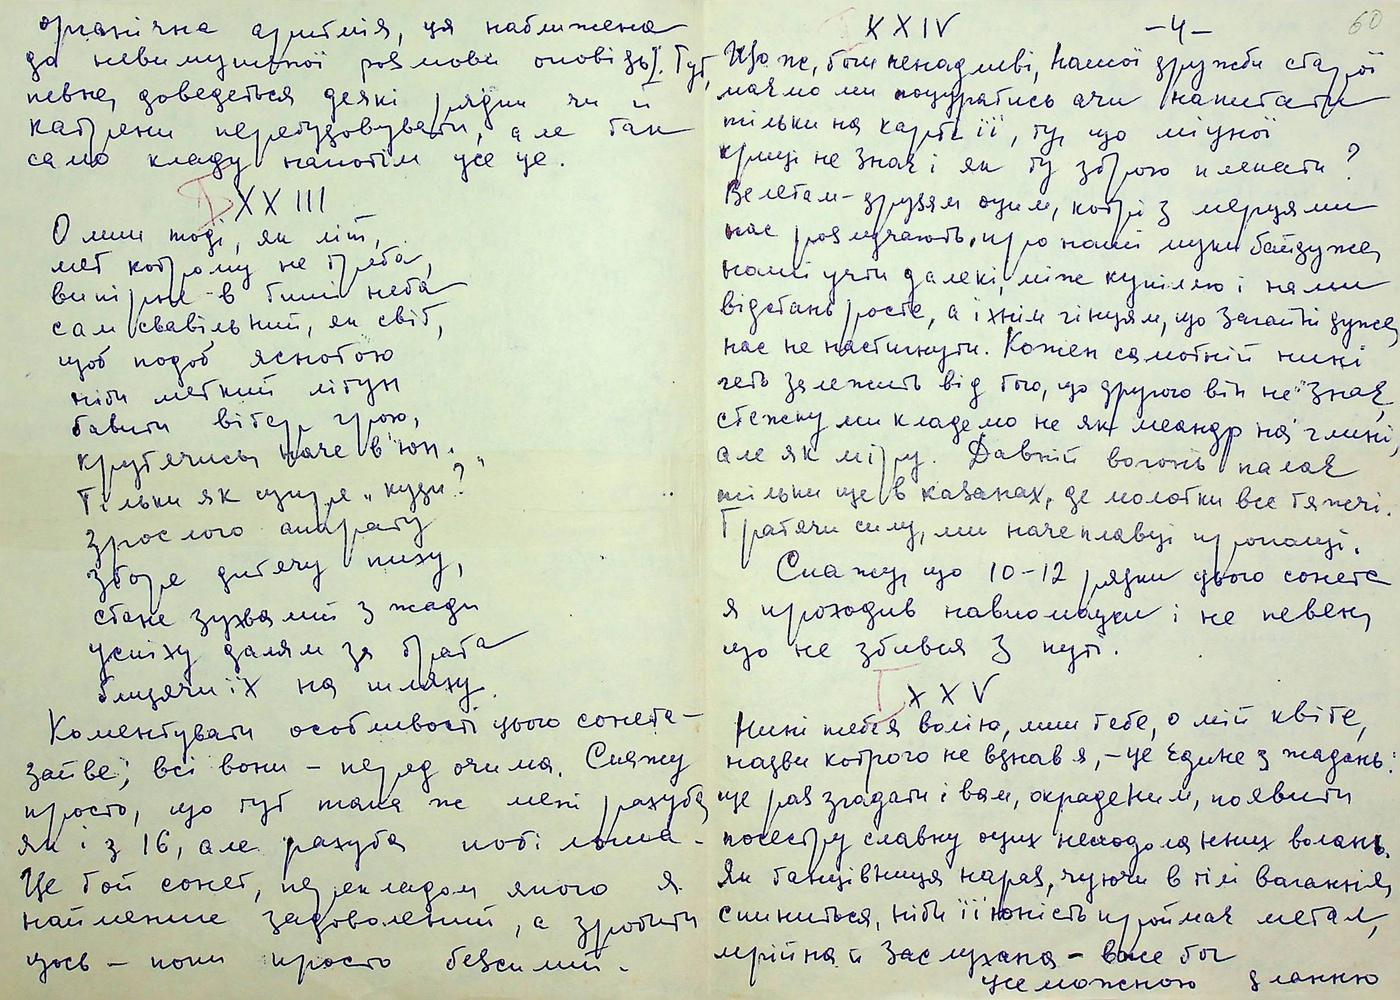 органічна аритмія, ця наближена
до невимушеної розмови оповідь]. Тут,
певне, доведеться деякі рядки чи й
катрени перебудовувати, але так
само кладу напотім усе це.
XXIII
О лиш тоді, як літ,
мет котрому не треба,
випірне в тиші неба
сам свавільний, як світ,
щоб подоб яснотою
ніби меткий літун
бавити вітер грою,
крутячись, наче в'юн.
Тільки як щире „куди?"
зрослого апарату
зборе дитячу пиху,
стане зухвалий з жади
успіху далям за брата
близячи їх на шляху.
Коментувати особливості цього сонета –
зайве; всі вони – перед очима. Скажу
просто, що тут така ж мені рахуба,
як і з 16, але рахуба побільша.
Це той сонет, перекладом якого я
найменше задоволений, а зробити
щось – поки просто безсилий.
XXIV
–4–
60
Що ж, боги ненадливі, нашої дружби старої
маємо ми поцуратись ачи напитати
тільки на карті її, ту, що міцної
криці не знає і як ту зброю плекати?
Велетам-друзям оцим, котрі з мерцями
нас розлучають, про наші муки байдуже,
наші учти далекі, між купіллю і нами
відстань росте, а їхнім гінцям, що загайні дуже,
нас не настигнути. Кожен самотній нині
геть залежить від того, що другого він не знає,
стежку ми кладемо не як меандр на глині,
але як міру. Давній вогонь палає
тільки ще в казанах, де молотки все тяжчі.
Тратячи силу, ми наче плавці пропащі.
Скажу, що 10–12 рядки цього сонета
я проходив навпомацки і не певен,
що не збився з путі.
XXV
Нині тебе я волію, лиш тебе, о мій квіте,
назви котрого не взнав я, – це єдине з жадань:
ще раз згадати і вам, окраденим, появити
посестру славну оцих нездоланних волань.
Як танцівниця нараз, чуючи в тілі вагання,
спиниться, ніби її юність проймає метал,
мрійна й заслухана – вже бо
усеможною дланню